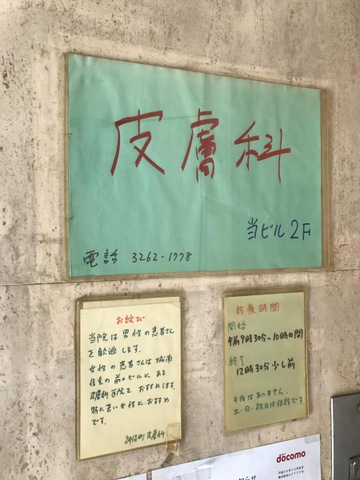 皮膚科
当ビル2F
電話 3262-1778
お詫び
当院は男性の患者さん
を歓迎します。
女性の患者さんは城南
信金の前のビルにある
皮膚科医院をおすすめします。
特に若い女性におすすめ
です。
神保町皮膚科
診療時間
開始
午前9時30分〜10時の間
終了
12時30分少し前
午後はありません。
土・日、祝日は休診です。
döcomo